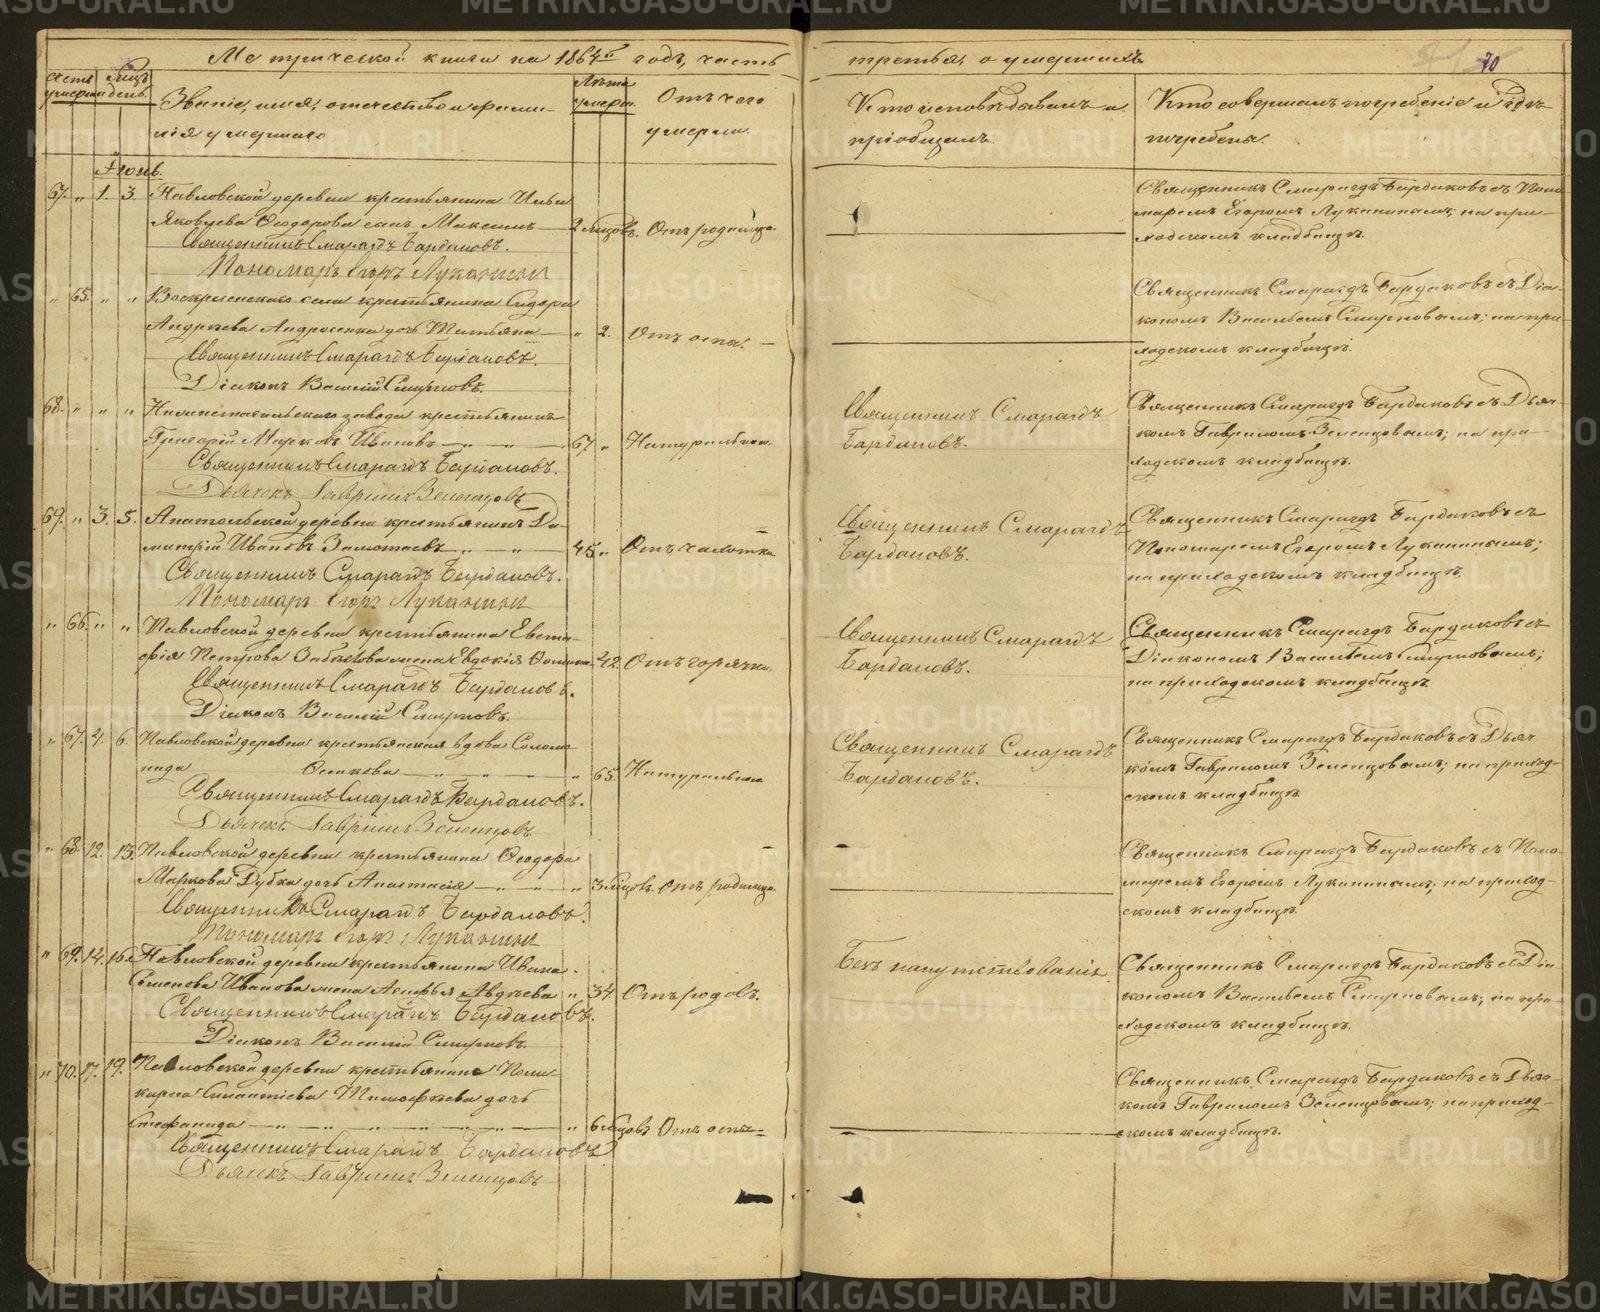 Метрической книги на 1864й годъ, часть третья, о умершихъ 70
Счетъ умершихъ
Мѣсяцъ день.
Званіе, имя, отчество и фами-
лія умершаго
Лѣта умерш.
Отъ чего
умерли.
Кто исповѣдывалъ и
пріобщалъ.
Кто совершалъ погребеніе и гдѣ
погребены.
Іюнь.
67. „ 1. 3. Павловской деревни крестьянина Ильи
Яковлева Ѳеодорова сынъ Максимъ — 2 мѣсцовъ. Отъ родимца.
Священникъ Смарагдъ Бардаковъ.
Пономарь Егоръ Луканинъ
Священникъ Смарагдъ Бардаковъ съ Поно-
маремъ Егоромъ Луканинымъ; на при-
ходскомъ кладбищѣ.
„ 65. „ „ Воскресенскаго села крестьянина Сидора
Андреева дочь Татьяна — „ 2. Отъ оспы. —
Священникъ Смарагдъ Бардаковъ.
Діаконъ Василій Смирновъ.
Священникъ Смарагдъ Бардаковъ съ Діа-
кономъ Васильемъ Смирновымъ; на при-
ходскомъ кладбищѣ.
68. „ „ „ завода крестьянинъ
Григорій Марковъ Ивановъ — „ — „ — 67 „ Натурально.
Священникъ Смарагдъ Бардаковъ.
Дьячекъ Гавріилъ Зеленцовъ
Священникъ Смарагдъ
Бардаковъ.
Священникъ Смарагдъ Бардаковъ съ Дьяч-
комъ Гавриломъ Зеленцовымъ; на при-
ходскомъ кладбищѣ.
69. „ 3. 5. Анатольской деревни крестьянинъ Ди-
митрій Ивановъ — „ — „ — 45. „ Отъ чахотки.
Священникъ Смарагдъ Бардаковъ.
Пономарь Егоръ Луканинъ
Священникъ Смарагдъ
Бардаковъ.
Священникъ Смарагдъ Бардаковъ съ
Пономаремъ Егоромъ Луканинымъ;
на приходскомъ кладбищѣ.
„ 66. „ „ Павловской деревни крестьянина Евста-
фія Петрова жена Евдокія „ 42. Отъ горячки.
Священникъ Смарагдъ Бардаковъ.
Діаконъ Василій Смирновъ.
Священникъ Смарагдъ
Бардаковъ.
Священникъ Смарагдъ Бардаковъ съ
Діакономъ Васильемъ Смирновымъ;
на приходскомъ кладбищѣ.
„ 67. 4. 6. Павловской деревни крестьянская вдова Соломо-
нида Осипова — „ — „ — „ 65. Натурально
Священникъ Смарагдъ Бардаковъ.
Дьячекъ Гавріилъ Зеленцовъ
Священникъ Смарагдъ
Бардаковъ.
Священникъ Смарагдъ Бардаковъ съ Дьяч-
комъ Гавриломъ Зеленцовымъ; на приход-
скомъ кладбищѣ
„ 68. 12. 13. Павловской деревни крестьянина Ѳеодора
Маркова Дубка дочь Анастасія — „ — „ — „ 3 мѣсцов. Отъ родимца.
Священникъ Смарагдъ Бардаковъ.
Пономарь Егоръ Луканинъ
Священникъ Смарагдъ Бардаковъ съ Поно-
маремъ Егоромъ Луканинымъ; на приход-
скомъ кладбищѣ.
„ 69. 14. 16. Павловской деревни крестьянина Ивана
Семенова Иванова жена Агафья Авдѣева „ 34. Отъ родовъ.
Священникъ Смарагдъ Бардаковъ.
Діаконъ Василій Смирновъ.
Безъ напутствованія
Священникъ Смарагдъ Бардаковъ съ Діа-
кономъ Васильемъ Смирновымъ; на при-
ходскомъ кладбищѣ.
„ 70. 17. 19. Павловской деревни крестьянина Поли-
карпа Тимофѣева дочь
Стефанида — „ — „ — „ 6 мѣсцовъ Отъ оспы
Священникъ Смарагдъ Бардаковъ.
Дьячекъ Гавріилъ Зеленцовъ
Священникъ Смарагдъ Бардаковъ съ Дьяч-
комъ Гавриломъ Зеленцовымъ; на приход-
скомъ кладбищѣ.
METRIKI.GASO-URAL.RU